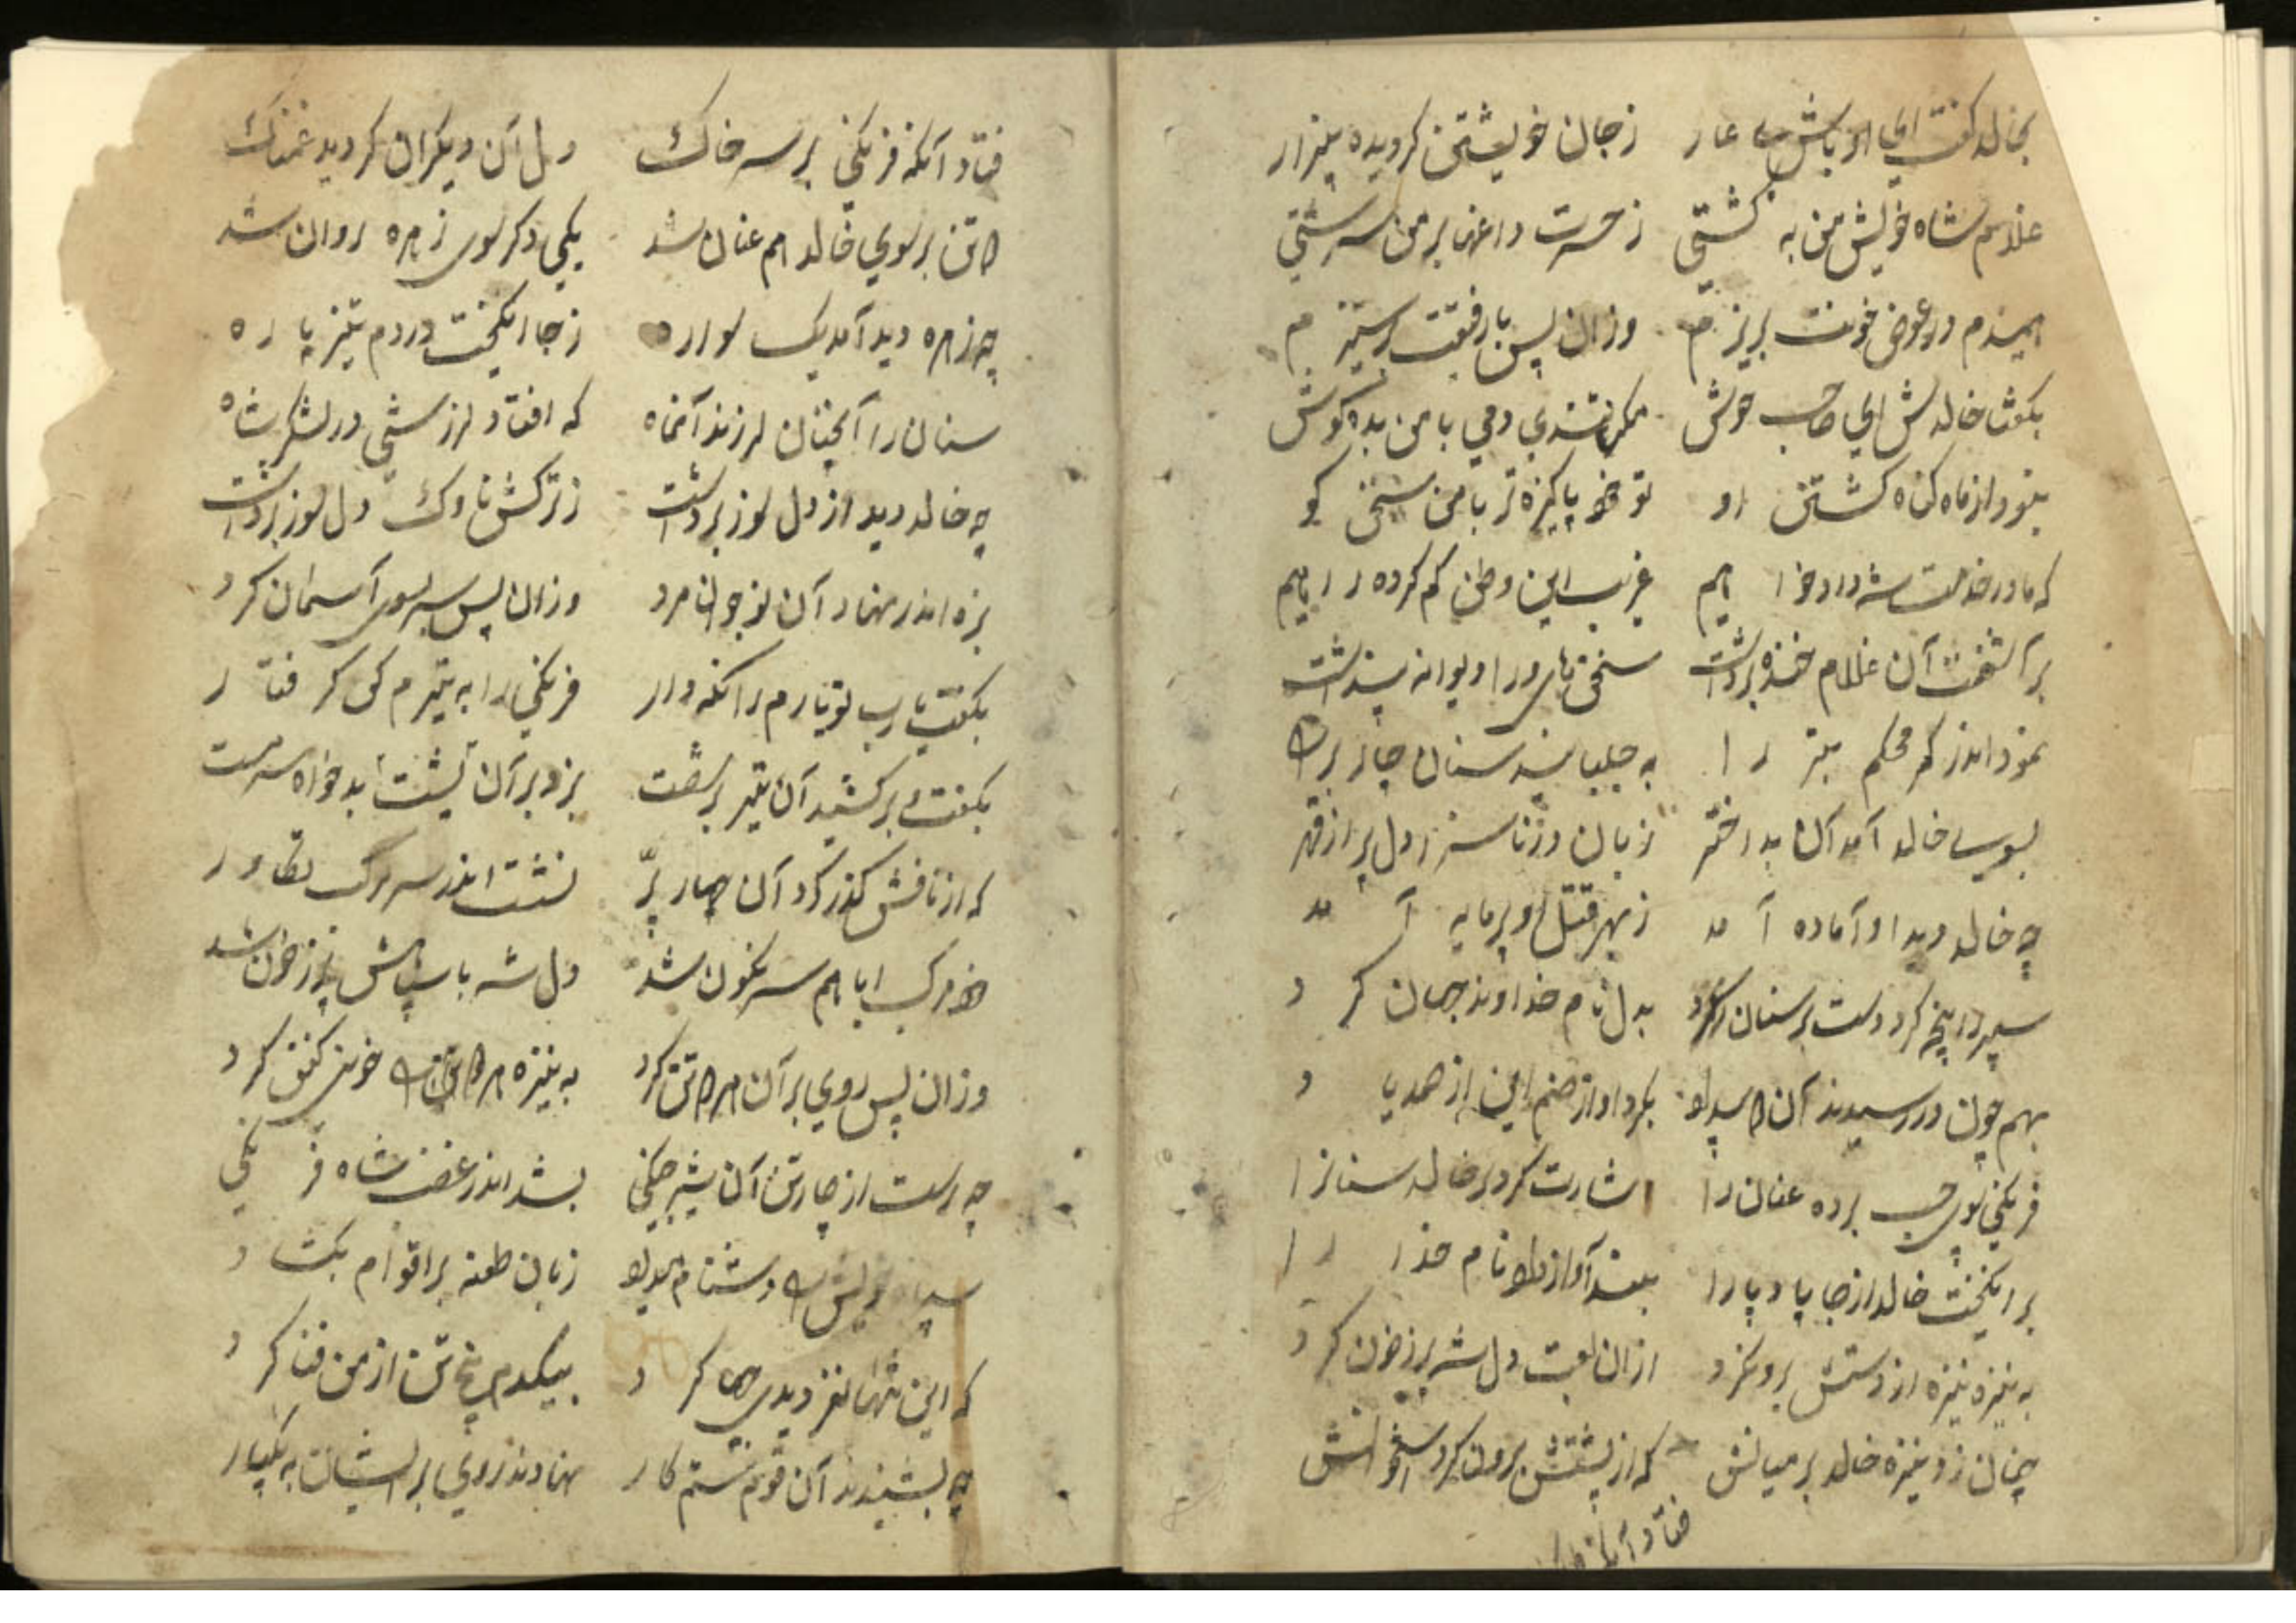 بخالد کفت ای اوباش بی عار زجان خویشتن کردیده بیزار
غلام شاه خویش من به کشتی زحسرت داغها بر من سرشتی
همیندم در عوض خونت بریزم وزان پس با رفیقت برستیزم
بکفتا خالدش ای صاحب هوش مکن تندی دمی با من بده کوش
نبود از ماه کناه کشتن او تو خود پاکیزه تر با من سخن کو
که ما در خدمت شه داد خواهیم غریب این وطن کم کرده راهیم
برآشفت آن غلام خنده برداشت سخنهای ورا دیوانه پنداشت
نمود اندر کمر محکم تبر را به جلبانید سنان جان بر را
بسوی خالد آمد آن بد اختر زبان در ناسزا دل پر از قهر
چه خالد دید او آماده آمد زبهر قتل او پرمایه آمد
سپر در پنجه کرد دست بر سنان کرد بدل نام خداوند جهان کرد
بهم چون در رسیدند آن دو بدلو بکرد او از صنم این از صمد یاد
فرنکی سوی چپ برده عنان را اشارت کرد بر خالد سنانرا
برانکیخت خالد از جا باد پا را بلند آواز داد نام خدا را
به نیزه نیزه از دستش برون کرد ازان لعبت دل شه پر زخون کرد
چنان زد نیزه خالد بر میانش که از پشتش برون کرد استخوانش
فتاد آنکه فرنکی بر سر خاک دل آن دیکران کردید غمناک
دو تن بر سوی خالد هم عنان شد یکی دکر سوی زهره روان شد
چه زهره دید آمد یک سواره زجا انکیخت در دم تیز باره
سنان را آنچنان لرزند آنماه که افتاد لرزشی در لشکر شاه
چه خالد دید از دل سوز برداشت زترکش ناوک دل دوز برداشت
بزه اندر نهاد آن نوجوان مرد وزان پس سر سوی آسمان کرد
بکفت یارب تو یارم را نکه دار فرنکی را به تیرم کن کرفتار
بکفت و برکشید آن تیر بر شصت بزد بر آن پشت بدخواه سرمست
که از نافش کذر کرد آن چهار پر نشت اندر سر مرکب تکاور
خود مرکب ابا هم سرنکون شد دل شه با سپاهش پر زخون شد
وزان پس روی بر آن هر دو تن کرد به نیزه هر دو تن را خونین کفن کرد
چه رست از چارتن آن شیر جنکی بشد اندر غضب شاه فرنکی
سپاه خویش را دشنام میداد زبان طعنه بر اقوام بکشاد
که این تنها نفر دیدی چها کرد بیکدم پنج تن از من فنا کرد
چه بشنیدند آن قوم ستم کار نهادند روی بر ایشان به یکبار